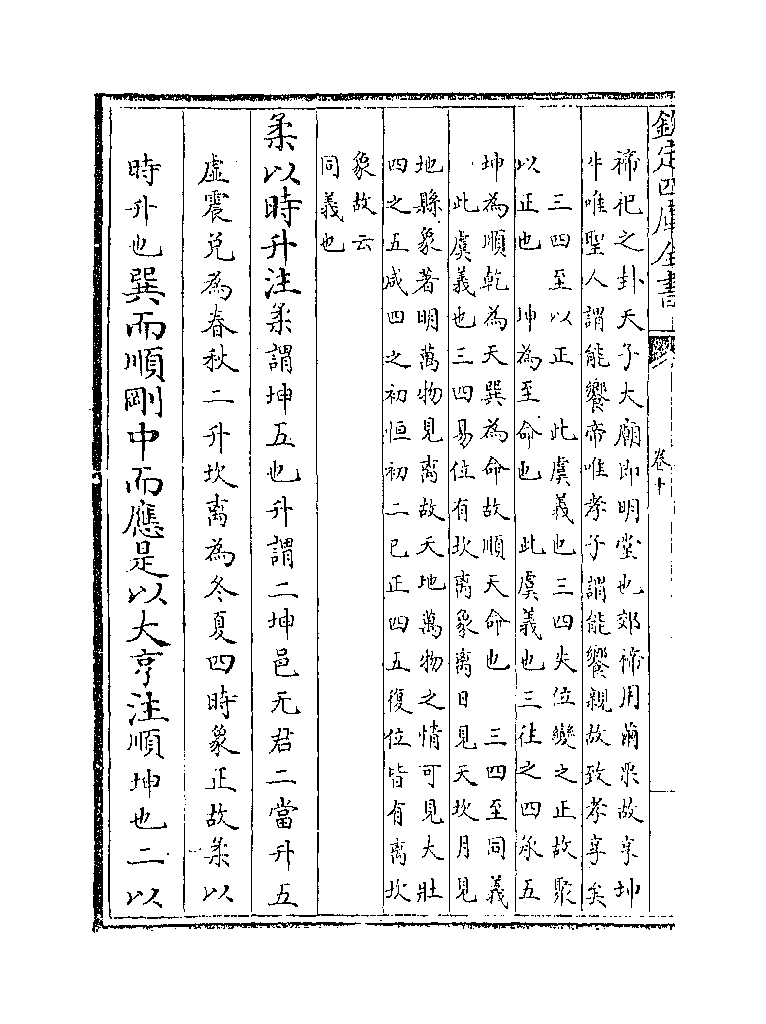 欽定四庫全書 卷十
禘祀之卦天子大廟即明堂也郊禘用繭栗故亨坤
牛唯聖人謂能饗帝唯孝子謂能饗親故致孝享矣
三四至以正 此虞義也三四失位變之正故聚
以正也 坤為至命也 此虞義也三往之四承五
坤為順乾為天巽為命故順天命也 三四至同義
此虞義也三四易位有坎离象离日見天坎月見
地縣象著明萬物見离故天地萬物之情可見大壯
四之五咸四之初恒初二已正四五復位皆有离坎
象故云
同義也
柔以時升注柔謂坤五也升謂二坤邑无君二當升五
虛震兌為春秋二升坎离為冬夏四時象正故柔以
時升也巽而順剛中而應是以大亨注順坤也二以